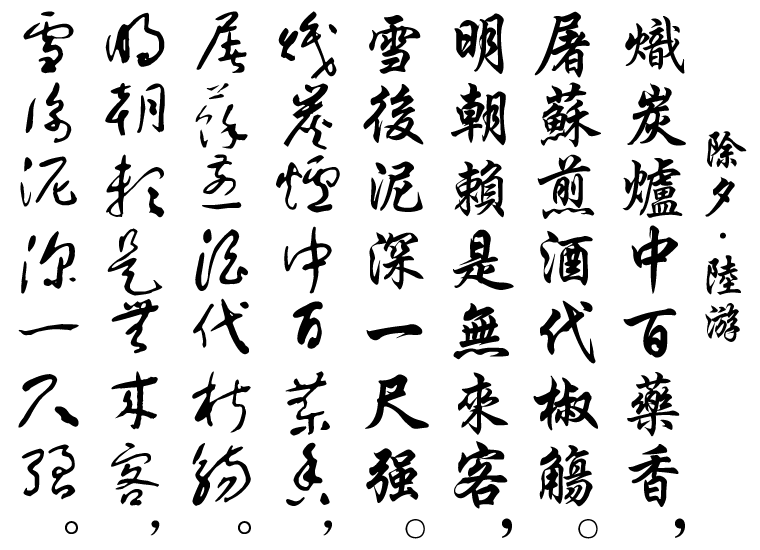 除夕·陸游
熾炭爐中百藥香，
屠蘇煎酒代椒觴。
明朝賴是無來客，
雪後泥深一尺强。
熾炭爐中百藥香，
屠蘇煎酒代椒觴。
明朝賴是無來客，
雪後泥深一尺强。